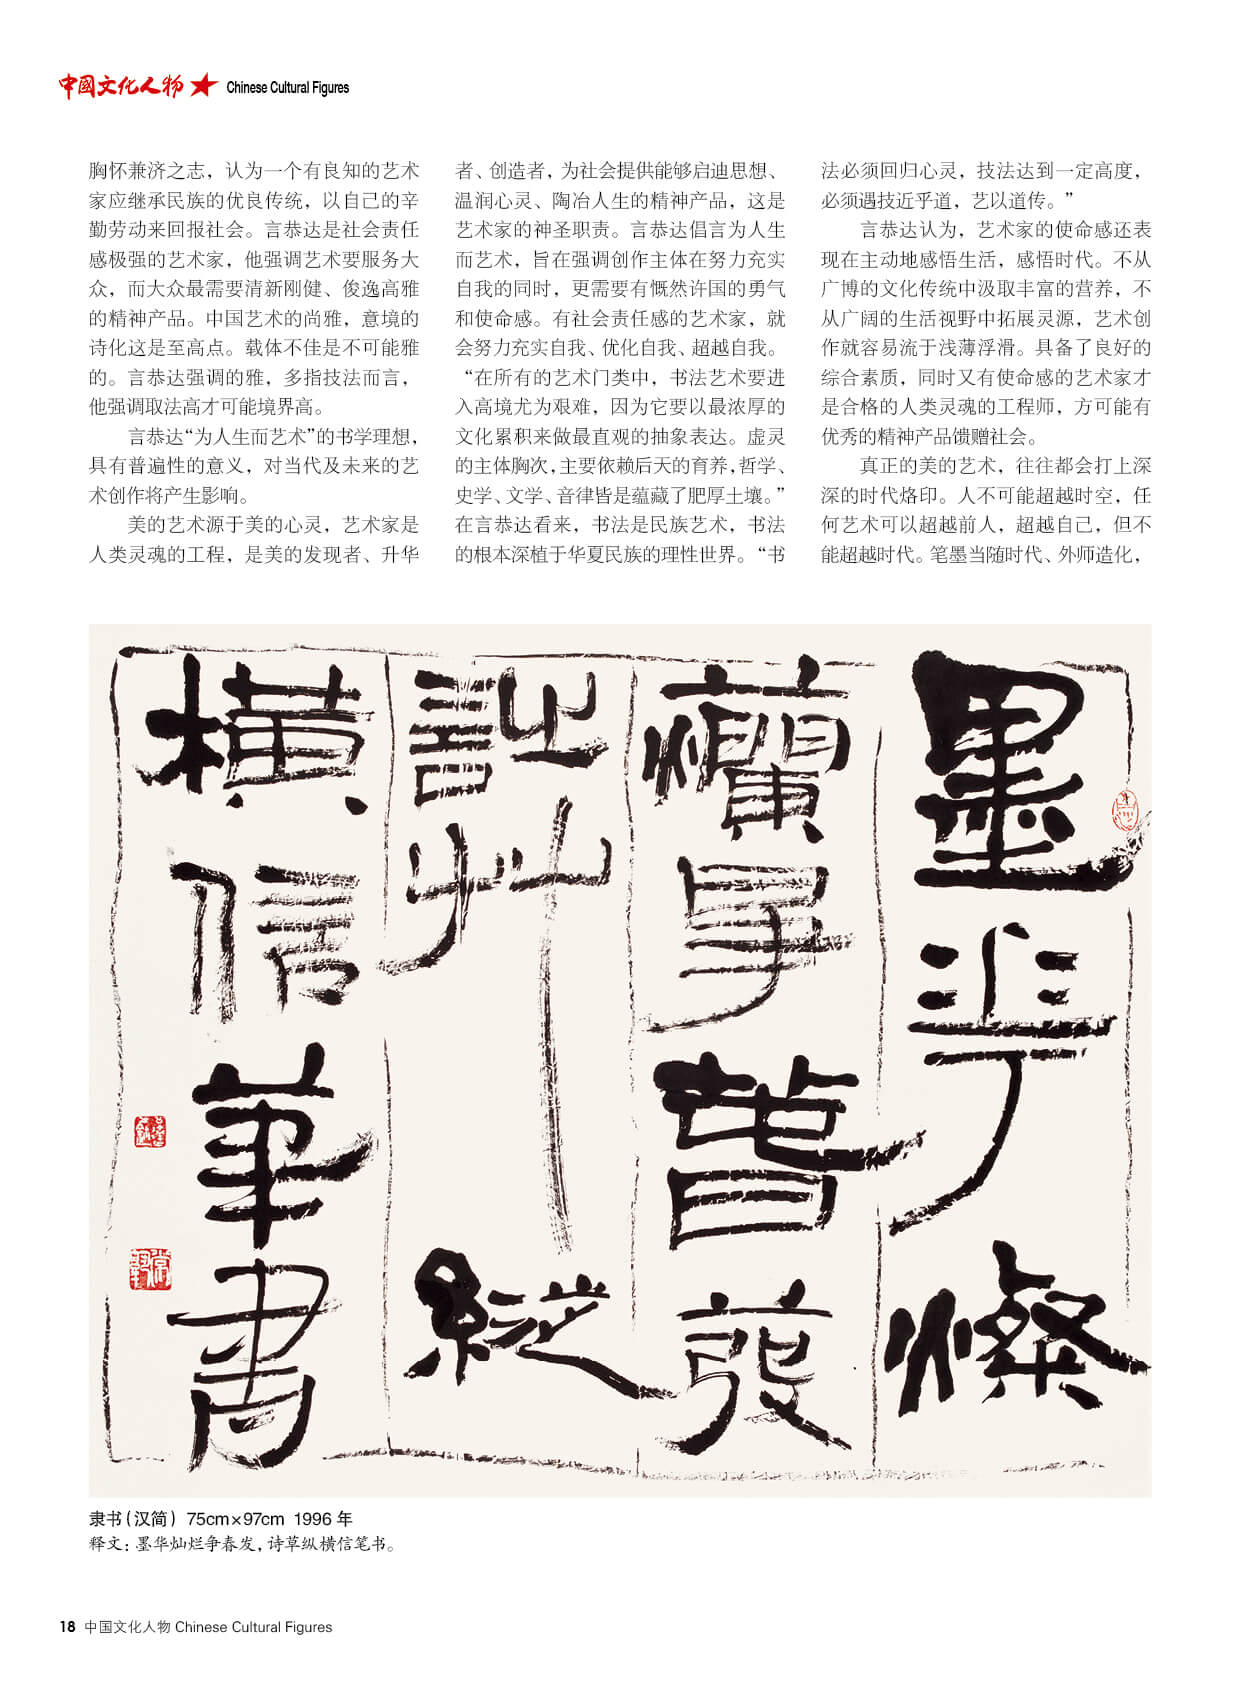 中國文化人物 Chinese Cultural Figures
胸怀兼济之志，认为一个有良知的艺术
家应继承民族的优良传统，以自己的辛
勤劳动来回报社会。言恭达是社会责任
感极强的艺术家，他强调艺术要服务大
众，而大众最需要清新刚健、俊逸高雅
的精神产品。中国艺术的尚雅，意境的
诗化这是至高点。载体不佳是不可能雅
的。言恭达强调的雅，多指技法而言，
他强调取法高才可能境界高。
言恭达“为人生而艺术”的书学理想，
具有普遍性的意义，对当代及未来的艺
术创作将产生影响。
美的艺术源于美的心灵，艺术家是
人类灵魂的工程，是美的发现者、升华
者、创造者，为社会提供能够启迪思想、
温润心灵、陶冶人生的精神产品，这是
艺术家的神圣职责。言恭达倡言为人生
而艺术，旨在强调创作主体在努力充实
自我的同时，更需要有慨然许国的勇气
和使命感。有社会责任感的艺术家，就
会努力充实自我、优化自我、超越自我。
“在所有的艺术门类中，书法艺术要进
入高境尤为艰难，因为它要以最浓厚的
文化累积来做最直观的抽象表达。虚灵
的主体胸次，主要依赖后天的育养，哲学、
史学、文学、音律皆是蕴藏了肥厚土壤。”
在言恭达看来，书法是民族艺术，书法
的根本深植于华夏民族的理性世界。“书
法必须回归心灵，技法达到一定高度，
必须遇技近乎道，艺以道传。”
言恭达认为，艺术家的使命感还表
现在主动地感悟生活，感悟时代。不从
广博的文化传统中汲取丰富的营养，不
从广阔的生活视野中拓展灵源，艺术创
作就容易流于浅薄浮滑。具备了良好的
综合素质，同时又有使命感的艺术家才
是合格的人类灵魂的工程师，方可能有
优秀的精神产品馈赠社会。
真正的美的艺术，往往都会打上深
深的时代烙印。人不可能超越时空，任
何艺术可以超越前人，超越自己，但不
能超越时代。笔墨当随时代、外师造化，
墨华燦
爛爭春發
詩艸縱
橫信筆書
隶书（汉简） 75cm×97cm 1996 年
释文：墨华灿烂争春发，诗草纵横信笔书。
18 中国文化人物 Chinese Cultural Figures